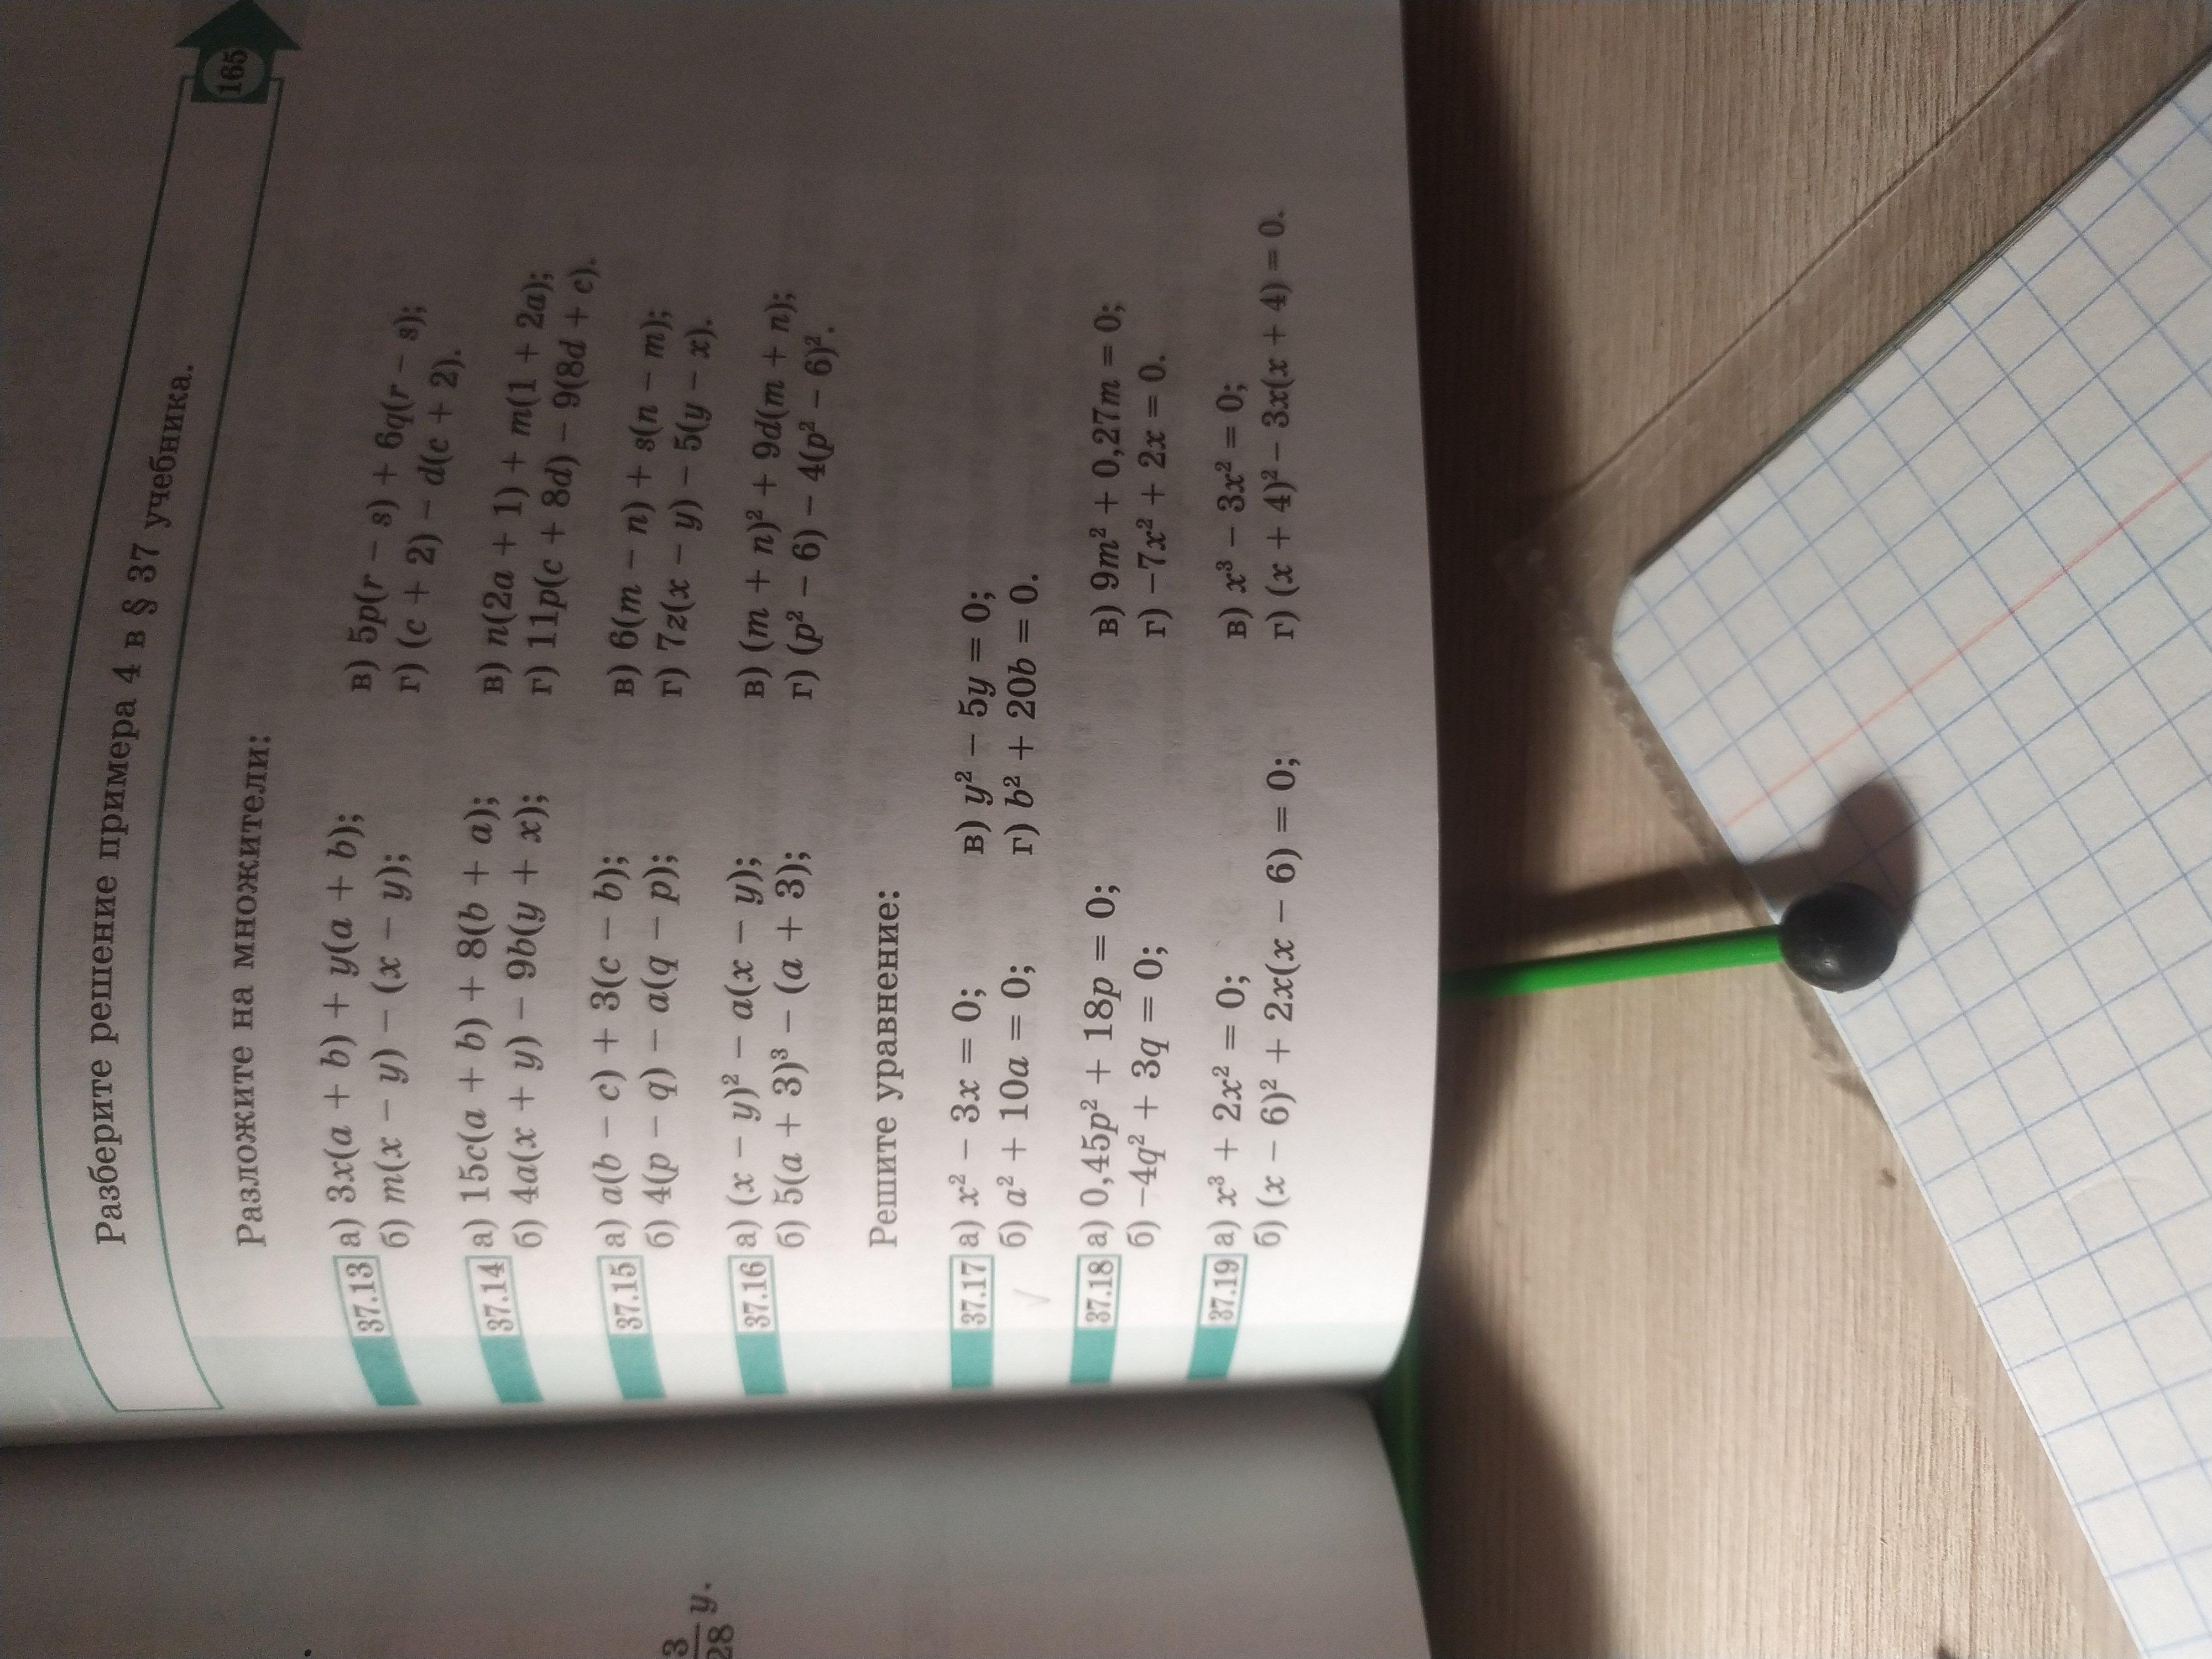 Разберите решение примера 4 в § 37 учебника.
165
Разложите на множители:
37.13 а) 3x(a + b) + y(a + b); в) 5p(r − s) + 6q(r − s);
б) m(x − y) − (x − y); г) (c + 2) − d(c + 2).
37.14 а) 15c(a + b) + 8(b + a); в) n(2a + 1) + m(1 + 2a);
б) 4a(x + y) − 9b(y + x); г) 11p(c + 8d) − 9(8d + c).
37.15 а) a(b − c) + 3(c − b); в) 6(m − n) + s(n − m);
б) 4(p − q) − a(q − p); г) 7z(x − y) − 5(y − x).
37.16 а) (x − y)² − a(x − y); в) (m + n)² + 9d(m + n);
б) 5(a + 3)³ − (a + 3); г) (p² − 6) − 4(p² − 6)².
Решите уравнение:
37.17 а) x² − 3x = 0; в) y² − 5y = 0;
б) a² + 10a = 0; г) b² + 20b = 0.
37.18 а) 0,45p² + 18p = 0; в) 9m² + 0,27m = 0;
б) −4q² + 3q = 0; г) −7x² + 2x = 0.
37.19 а) x³ + 2x² = 0; в) x³ − 3x² = 0;
б) (x − 6)² + 2x(x − 6) = 0; г) (x + 4)² − 3x(x + 4) = 0.
3/28 y.